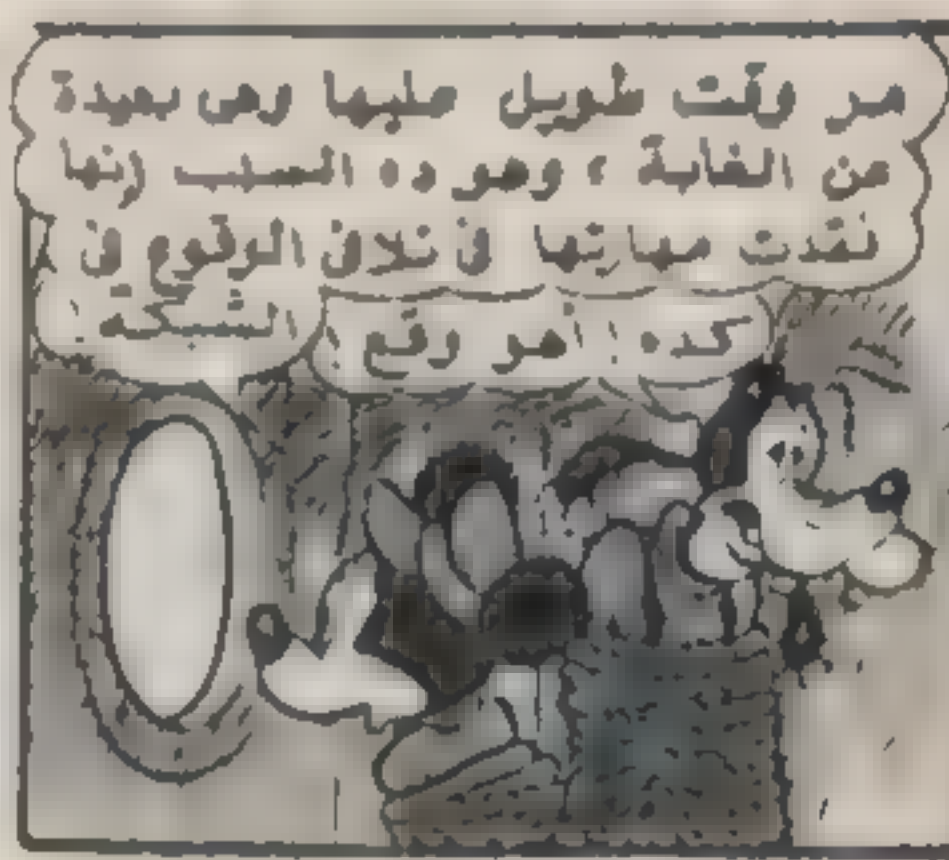 مر وقت طويل عليها وهى بعيدة
عن الغابة ، وهو ده السبب إنها
فقدت مهارتها فى تلافى الوقوع فى
الشبكة !
كده ! أهو وقع !